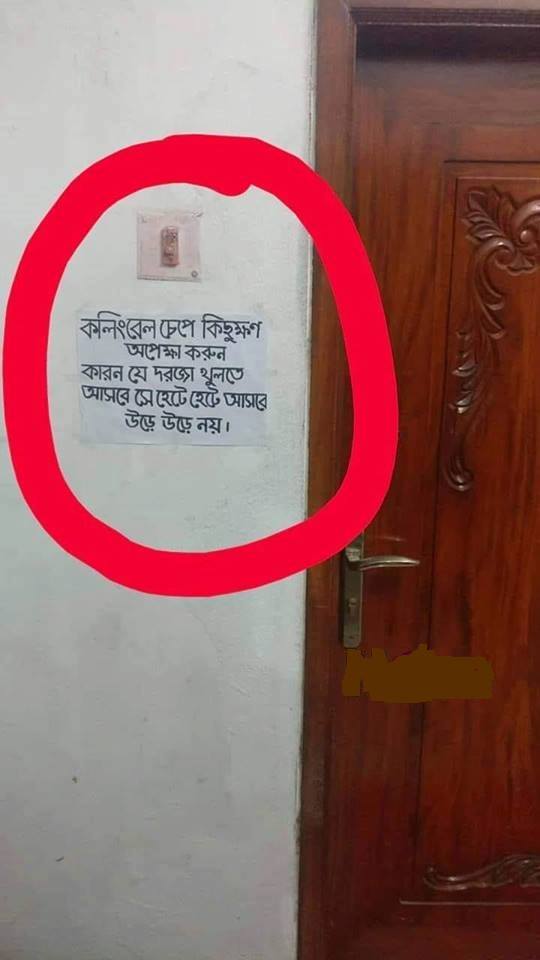 কলিংবেল চেপে কিছুক্ষণ
অপেক্ষা করুন
কারন যে দরজা খুলতে
আসবে সে হেটে হেটে আসবে
উড়ে উড়ে নয়।